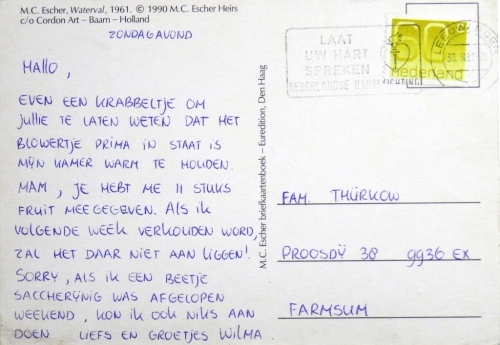 M.C. Escher, Waterval, 1961. © 1990 M.C. Escher Heirs
c/o Cordon Art – Baarn – Holland
ZONDAGAVOND
HALLO,
EVEN EEN KRABBELTJE OM
JULLIE TE LATEN WETEN DAT HET
BLOWERTJE PRIMA IN STAAT IS
MIJN KAMER WARM TE HOUDEN.
MAM, JE HEBT ME 11 STUKS
FRUIT MEEGEGEVEN. ALS IK
VOLGENDE WEEK VERKOUDEN WORD,
ZAL HET DAAR NIET AAN LIGGEN!
SORRY, ALS IK EEN BEETJE
SACCHERIJNIG WAS AFGELOPEN
WEEKEND, KON IK OOK NIKS AAN
DOEN LIEFS EN GROETJES WILMA
M.C. Escher briefkaartenboek – Euredition, Den Haag
LAAT
UW HART
SPREKEN
NEDERLANDSE HARTSTICHTING
LEEUWARDEN
50
Nederland
FAM. THÜRKOW
PROOSDIJ 38 9936 EX
FARMSUM